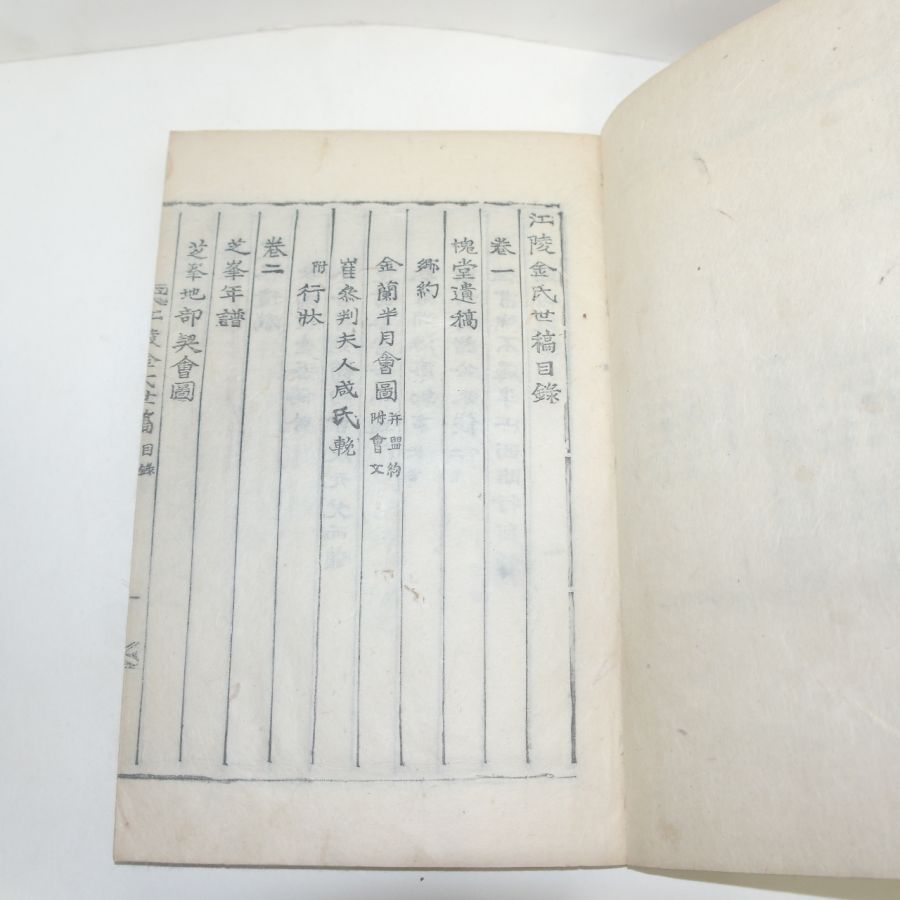 江陵金氏世稿目錄
卷一
愧堂遺稿
鄕約
金蘭半月會圖 幷盟約 附會文
崔叅判夫人咸氏輓
附行狀
卷二
芝峯年譜
芝峯地部契會圖
江陵金氏世稿 目錄 一